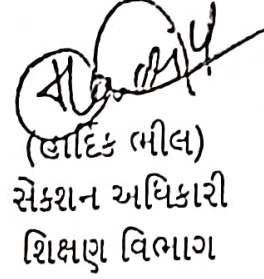 (હાર્દિક ભીલ)
સેક્શન અધિકારી
શિક્ષણ વિભાગ